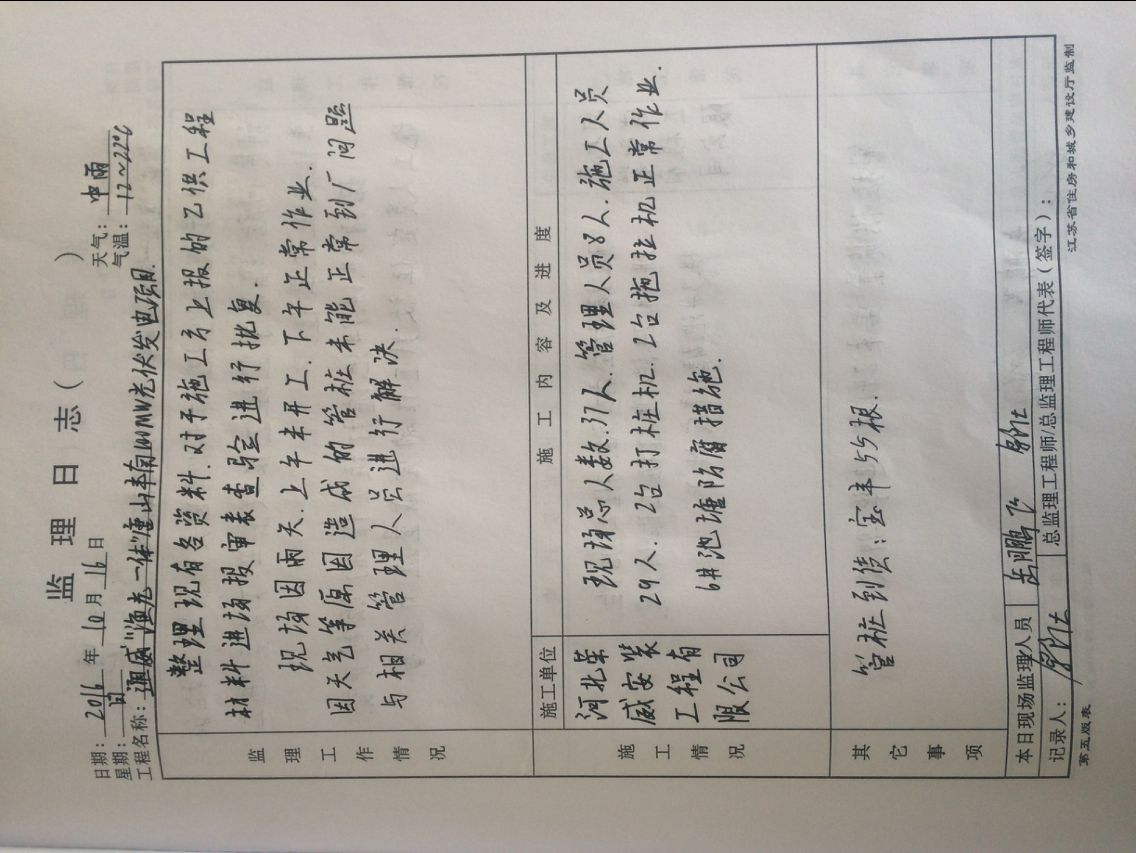 监理日志(
)
日期：2016年10月16日
天气：中雨
星期：日
气温：12～22℃
工程名称：通威"渔光一体"唐山丰南100MW光伏发电项目
监理工作情况
整理现有各资料.对于施工方上报的乙供工程
材料进场报审表查验进行批复.
现场因雨天.上午未开工.下午正常作业.
因天气等原因造成的管桩未能正常到厂问题
与相关管理人员进行解决.
施工情况
施工单位
施工内容及进度
河北荣
威安装
工程有
限公司
现场总人数37人.管理人员8人.施工人员
29人. 2台打桩机. 2台拖拉机正常作业.
6#池塘防腐措施.
其它事项
管桩到货：宝丰55根.
本日现场监理人员
岳鹏飞
记录人：
总监理工程师/总监理工程师代表（签字）：
第五版表
江苏省住房和城乡建设厅监制